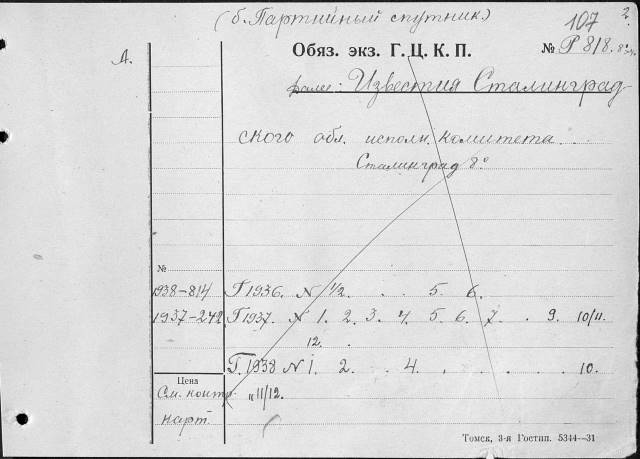 (б. Партийный спутник.) 107 2.
Обяз. экз. Г. Ц. К. П. № Р 818.
А. ранее: Известия Сталинград
ского обл. исполн. комитета
Сталинград 8º
№
1938-814 Г 1936. N 1/2. . . 5. 6.
1937-242 Г 1937. N 1. 2. 3. 4. 5. 6. 7. . 9. 10/11.
12. .
Г. 1938 N 1. 2. 4. . . . . 10.
Цена
См. контр. N 11/12.
карт.
Томск, 3-я Гостип. 5344—31